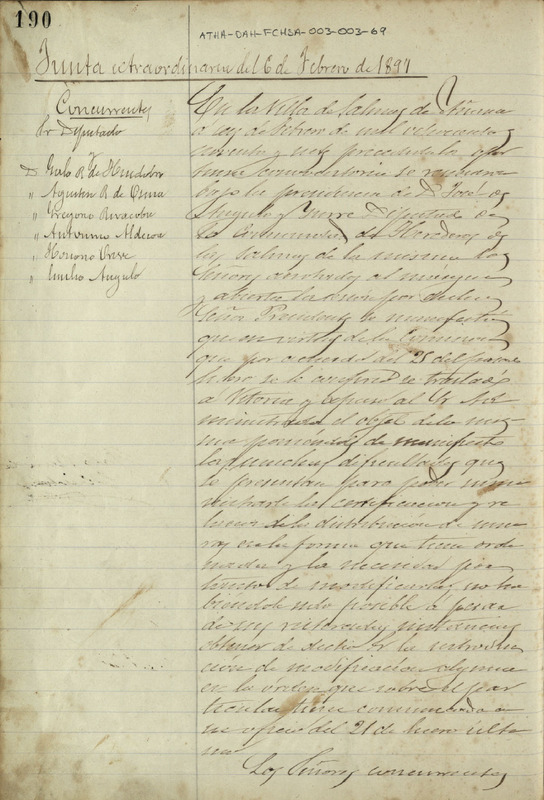 190
ATHA-DAH-FCHSA-003-003-69
Junta extraordinaria del 6 de Febrero de 1897
Concurrentes
Sr Diputado
D. Galo R. de
" Agustin R de Osma
" Gregorio
" Antonino
" Honorio
" Emilio Angulo
En la Villa de Salinas de Añana
a seis de Febrero de mil ochocientos
noventa y siete precedida la opor
tuna convocatoria se reunieron
bajo la presidencia de D José de
Angulo y Yurre Diputado de
la Comunidad de Herederos de
las Salinas de la misma los
Señores anotados al margen
y abierta la sesion por dicho
Señor Presidente se manifestó
que en virtud de la Comision
que por acuerdo del 25 del pasado
Enero se le confirió se trasladó
a Vitoria y expuso al Sr Ad
ministrador el objeto de la mis
ma poniendo de manifiesto
las muchas dificultades que
se presentan para poder sumi
nistrarle las certificaciones y re
laciones de la distribucion de mue
ras en la forma que tiene orde
nada y la necesidad por
tanto de modificarlas, no ha
biendole sido posible a pesar
de sus reiteradas instancias
obtener de dicho Sr la introduc
cion de modificacion alguna
en la órden que sobre el par
ticular tiene comunicada en
su oficio del 21 de Enero últi
mo
Los Señores concurrentes